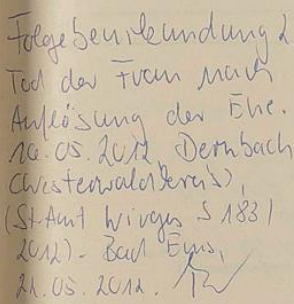 Folgebeurkundung 2
Tod der Frau nach
Auflösung der Ehe.
10.05.2012, Dernbach
(Westerwaldkreis),
(StAmt Wirges S 183/
2012). Bad Ems,
21.05.2012.